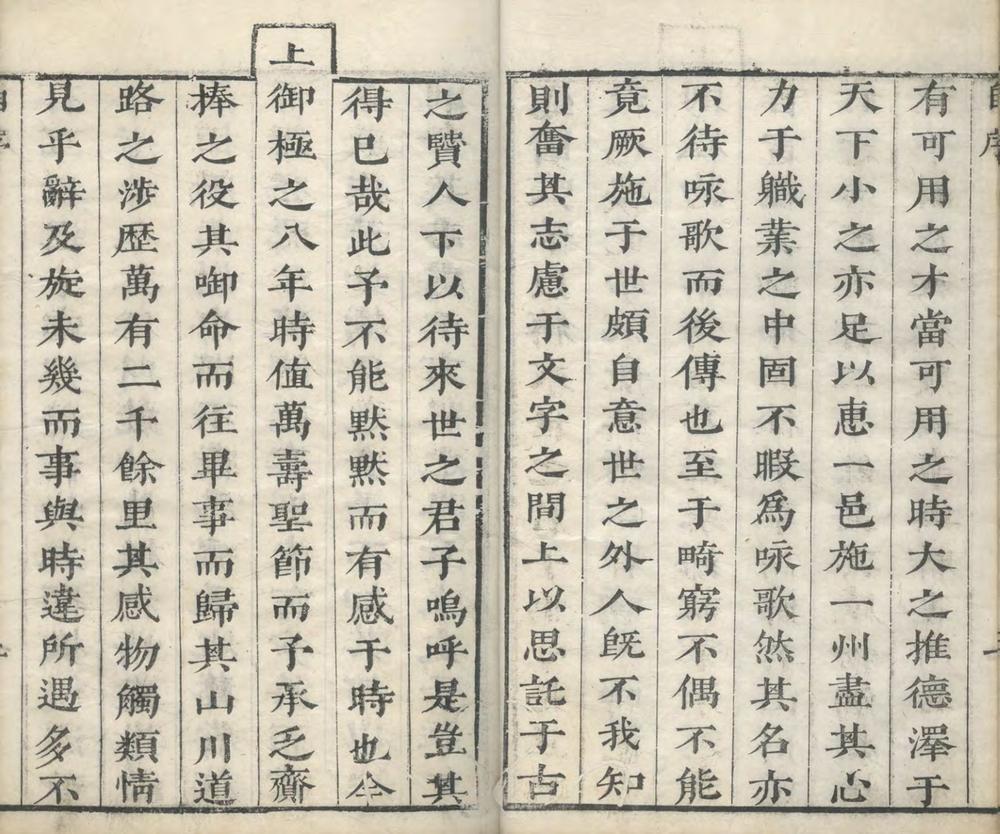 有可用之才當可用之時大之推德澤于
天下小之亦足以惠一邑施一州盡其心
力于職業之中固不暇爲咏歌然其名亦
不待咏歌而後傳也至于畸窮不偶不能
竟厥施于世頗自意世之外人旣不我知
則奮其志慮于文字之間上以思託于古
之賢人下以待來世之君子嗚呼是豈其
得已哉此予不能黙黙而有感于時也今
上
御極之八年時值萬壽聖節而予承乏齋
捧之役其啣命而往畢事而歸其山川道
路之涉歷萬有二千餘里其感物觸類情
見乎辭及旋未幾而事與時違所遇多不